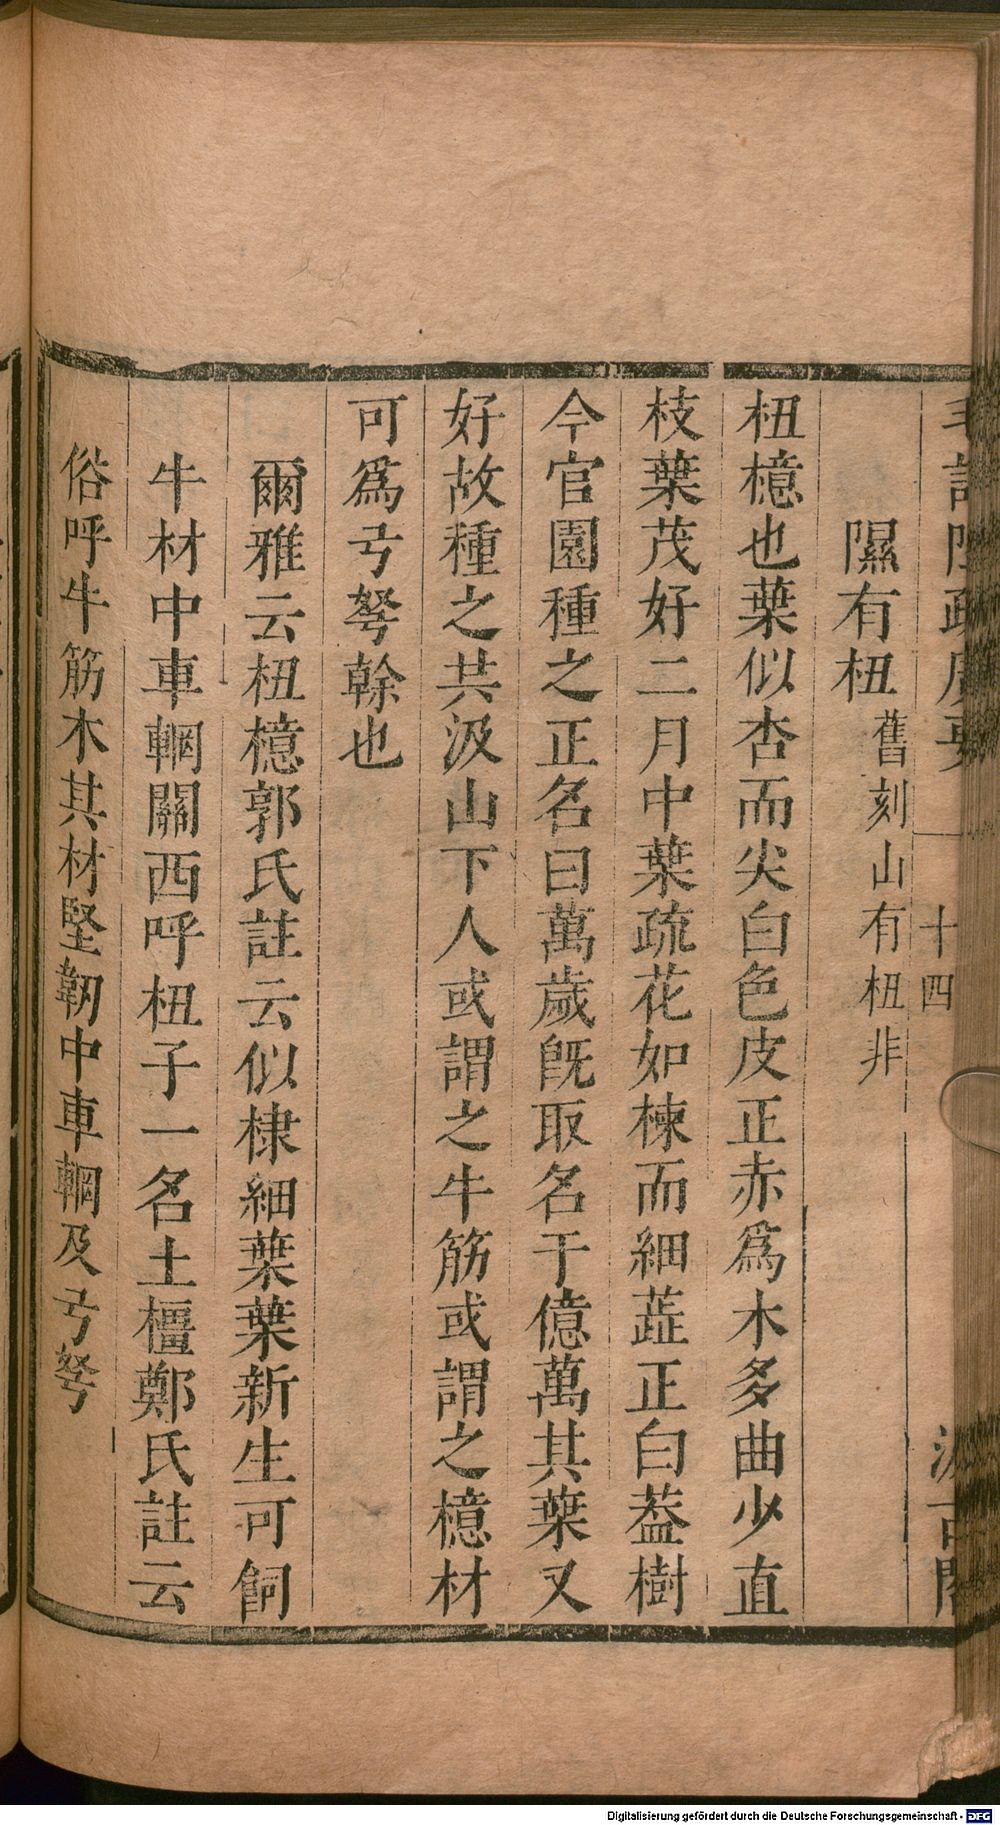 毛詩陸疏廣要
十四
汲古閣
隰有杻舊刻山有杻非
杻檍也葉似杏而尖白色皮正赤為木多曲少直
枝葉茂好二月中葉疏花如楝而細蕋正白葢樹
今官園種之正名曰萬歲旣取名于億萬其葉又
好故種之共汲山下人或謂之牛筋或謂之檍材
可為弓弩榦也
爾雅云杻檍郭氏註云似棣細葉葉新生可飼
牛材中車輞關西呼杻子一名土橿鄭氏註云
俗呼牛筋木其材堅韌中車輞及弓弩
Digitalisierung gefördert durch die Deutsche Forschungsgemeinschaft - DFG